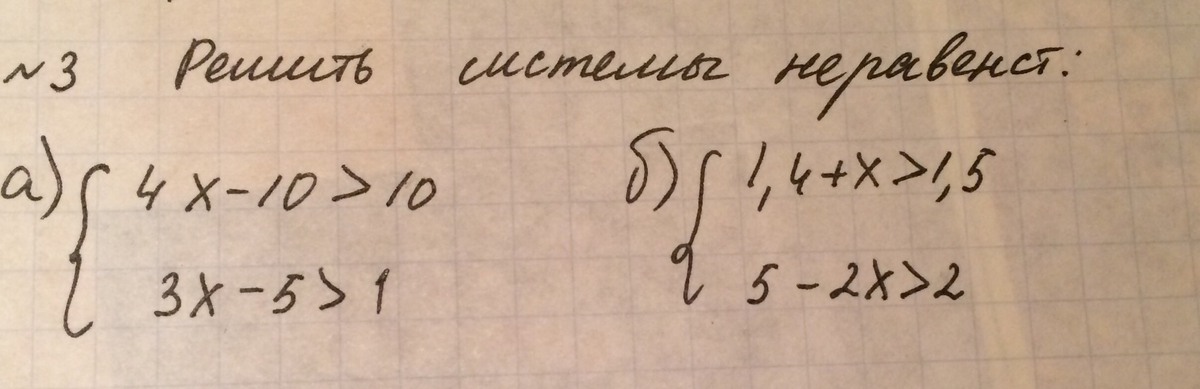 №3 Решить системы неравенст:
а) { 4x-10>10 б) { 1,4+x>1,5
3x-5>1 5-2x>2